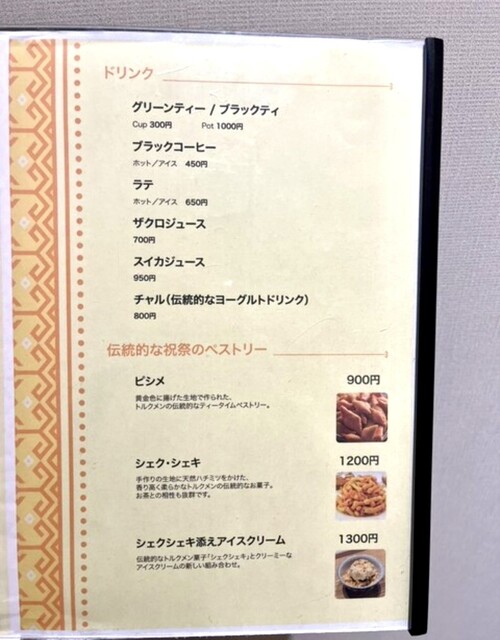 ドリンク
グリーンティー / ブラックティ
Cup 300円 Pot 1000円
ブラックコーヒー
ホット／アイス 450円
ラテ
ホット／アイス 650円
ザクロジュース
700円
スイカジュース
950円
チャル（伝統的なヨーグルトドリンク）
800円
伝統的な祝祭のペストリー
ピシメ 900円
黄金色に揚げた生地で作られた、
トルクメンの伝統的なティータイムペストリー。
シェク・シェキ 1200円
手作りの生地に天然ハチミツをかけた、
香り高く柔らかなトルクメンの伝統的なお菓子。
お茶との相性も抜群です。
シェクシェキ添えアイスクリーム 1300円
伝統的なトルクメン菓子「シェクシェキ」とクリーミーな
アイスクリームの新しい組み合わせ。